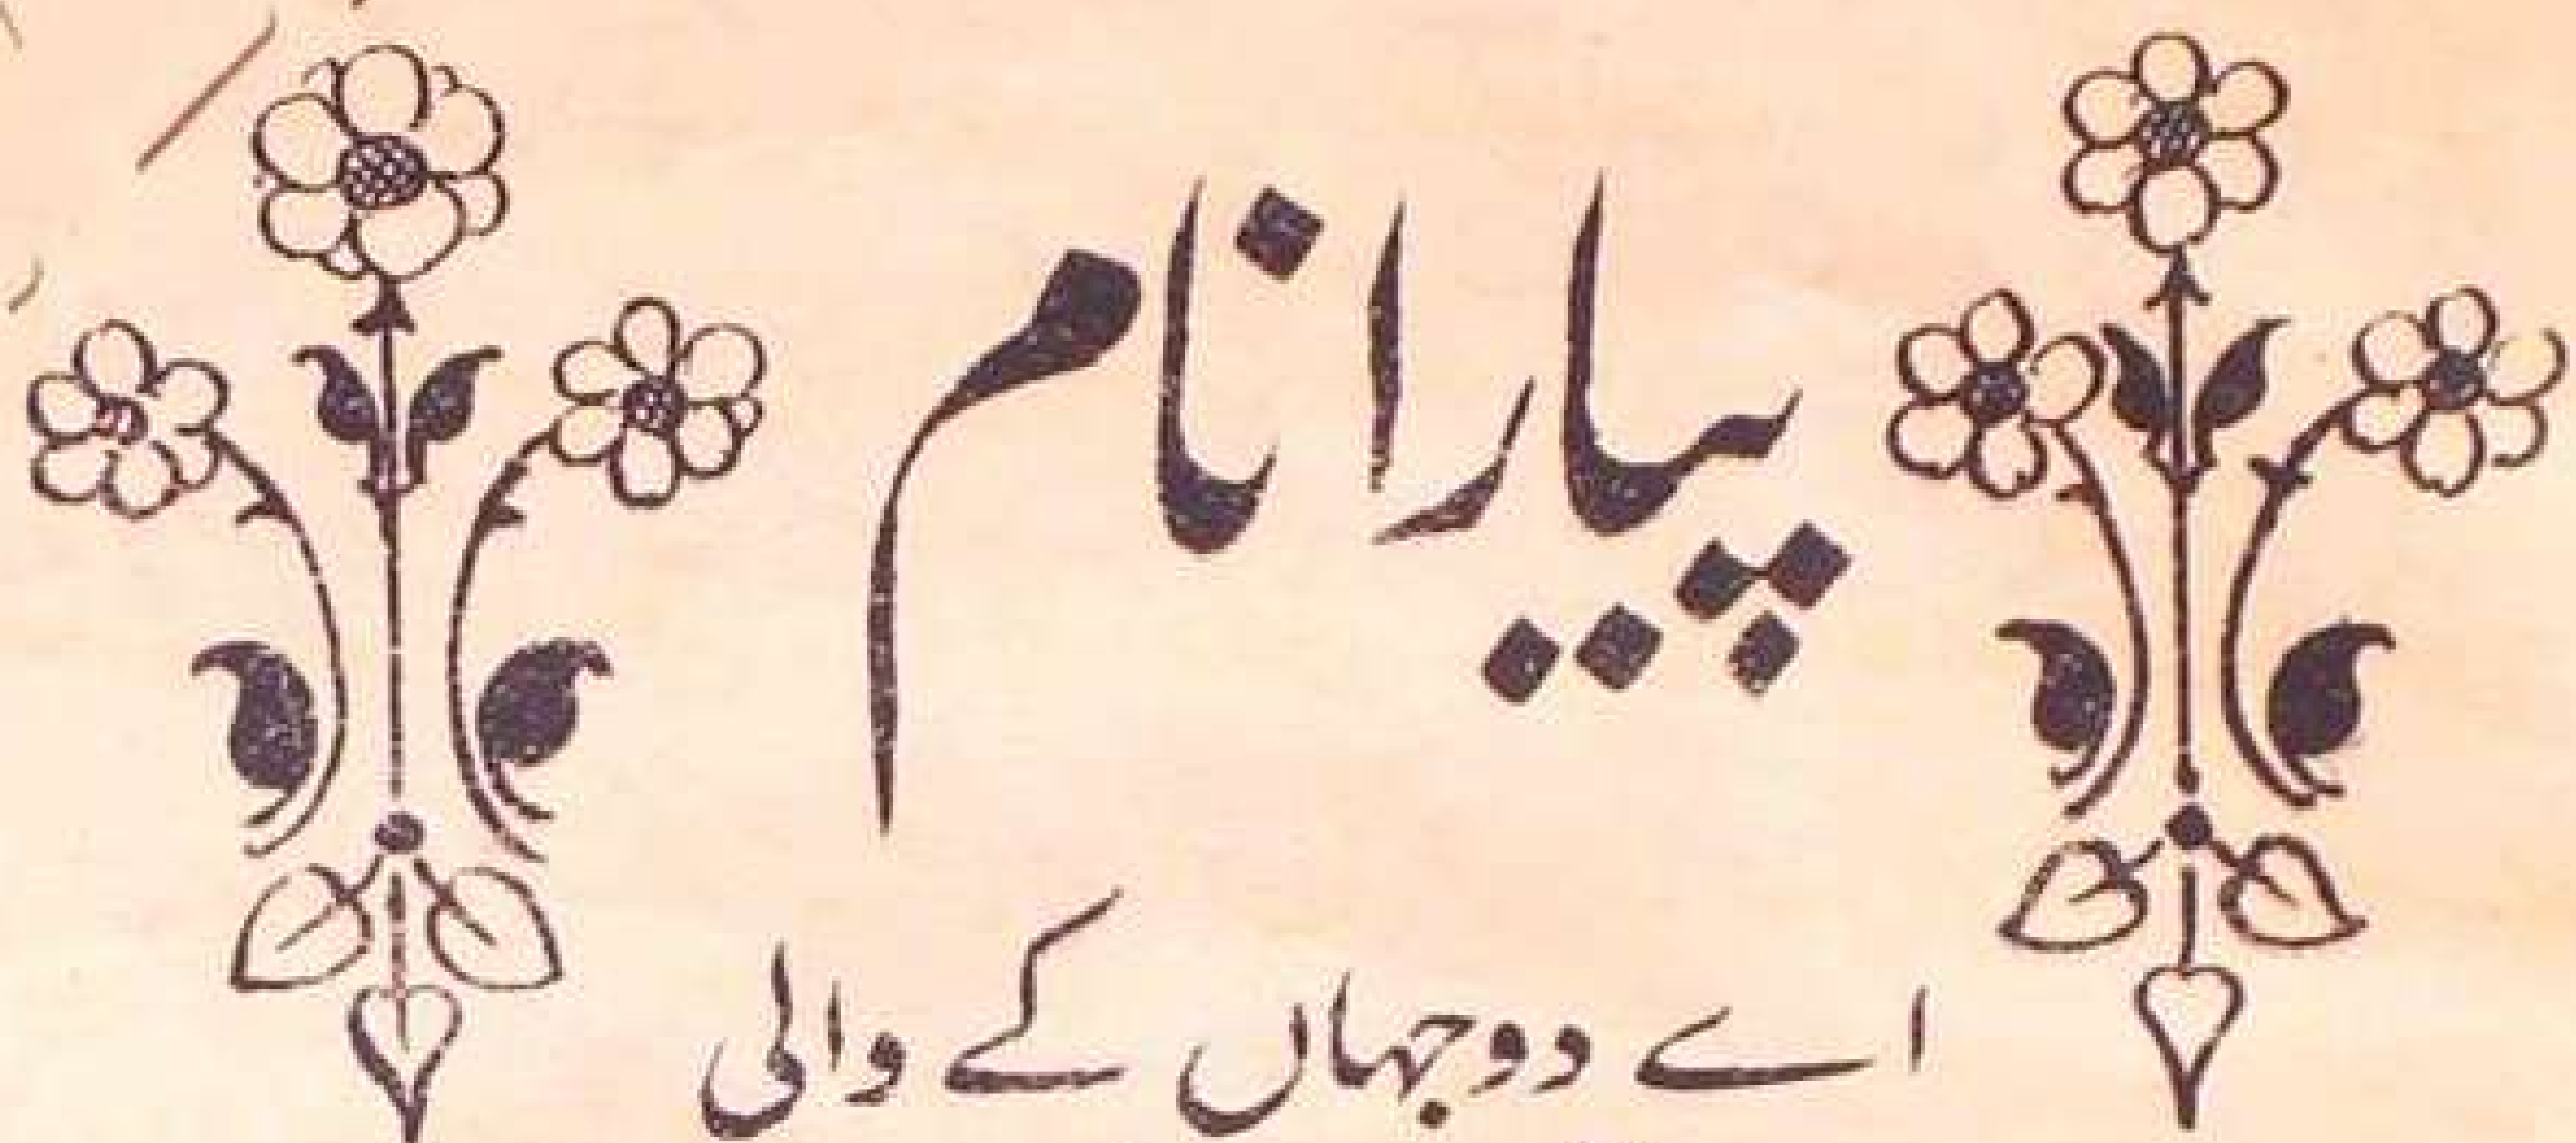 پیارا نام
اے دو جہاں کے والی